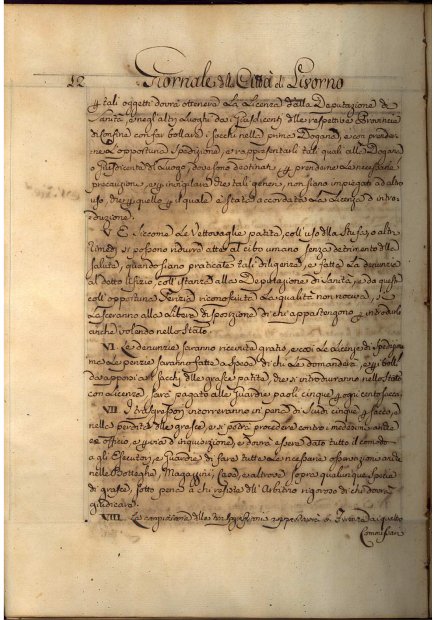 12 Giornale della Città di Livorno
tali oggetti dovrà ottenere La Licenza dalla Deputazione di
Sanità, e negl'altri Luoghi dai Giusdicenti delle respettive Provincie
di Confine con far bollare i sacchi nella prima Dogana, e con prender-
ne L'opportuna Spedizione, e rappresentarli tali quali alla Dogana
o Giusdicente di Luogo, dove sono destinati, prenderne Le necessarie
precauzioni, e invigilare che tali generi non siano impiegati ad altro
uso, che quello, il quale è stata accordata La Licenza d'intro-
duzione.
V. E Siccome Le Vettovaglie patite, coll'uso della Stufa, o altri
rimedj si possono ridurre atte al cibo umano senza detrimento della
salute, quando siano praticate tali diligenze, e fatta La denunzia
al detto Ufizio, coll'istanza alla Deputazione di Sanità, e da questa
coll'opportuna Perizia riconosciuta La qualità non nociva, si
Lasceranno alla Libera disposizione di chi appartengono, introdurle
anche volendo nello Stato.
VI. Le denunzie saranno ricevute gratis, e così Le Licenze di spedizione
ma Le perizie saranno fatte a spese di chi Le domanderà, e i bolli
da apporsi a' Sacchi delle grasce patite, che si introdurranno nello Stato
con Licenza, sarà pagato alle Guardie paoli cinque ogni cento sacca.
VII. I trasgressori incorreranno in pena di Scudi cinque sacco, e
nella perdita delle grasce, e si potrà procedere contro i medesimi anche
ex officio, e via d'inquisizione, e dovrà essere dato tutto il comodo
agli Esecutori, e Guardie di fare tutte Le necessarie osservazioni anche
nelle Botteghe, Magazzini, Case, e altrove sopra qualunque specie
di grasce, sotto pena a chi resiste dell'Arbitrio rigoroso di chi dovrà
giudicare.
VIII. La cognizione delle trasgressioni
Commissar